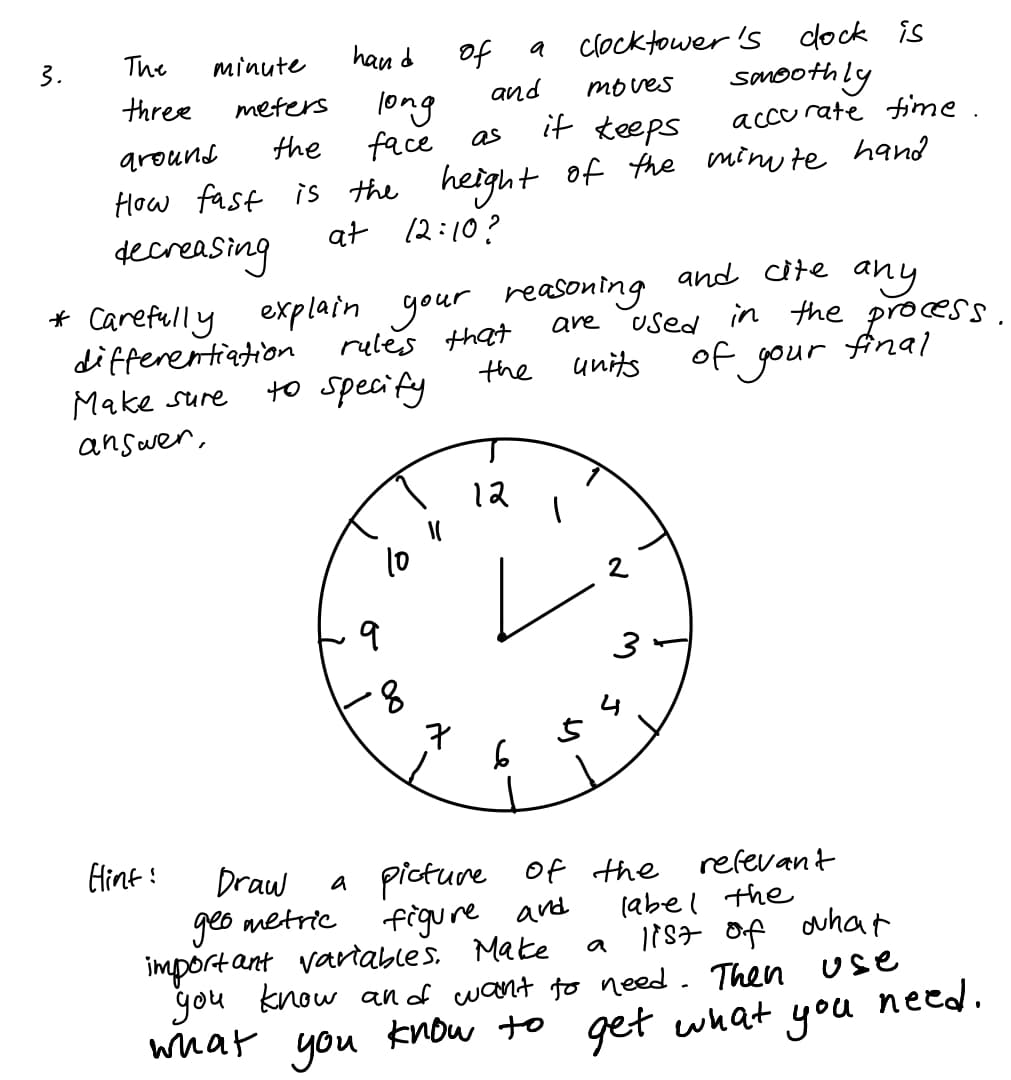 3. The minute hand of a clocktower's clock is
three meters long and moves smoothly
around the face as it keeps accurate time.
How fast is the height of the minute hand
decreasing at 12:10?
* Carefully explain your reasoning and cite any
differentiation rules that are used in the process.
Make sure to specify the units of your final
answer.
12
11
1
10
2
9
3
8
4
7
5
6
Hint: Draw a picture of the relevant
geometric figure and label the
important variables. Make a list of what
you know and want to need. Then use
what you know to get what you need.